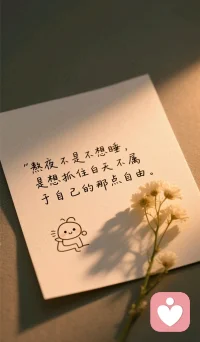 “熬夜不是不想睡，
是想抓住白天不属
于自己的那点自由。